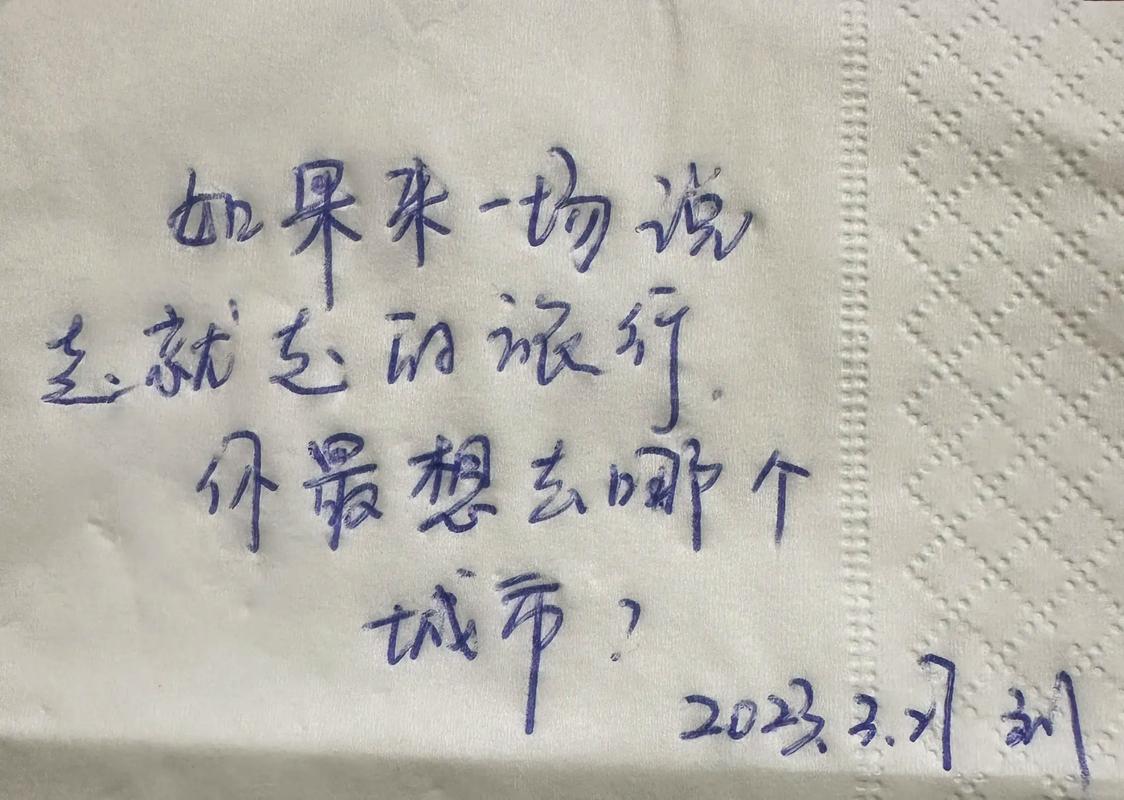 如果来一场说
走就走的旅行.
你最想去哪个
城市?
2023.3.27 刘